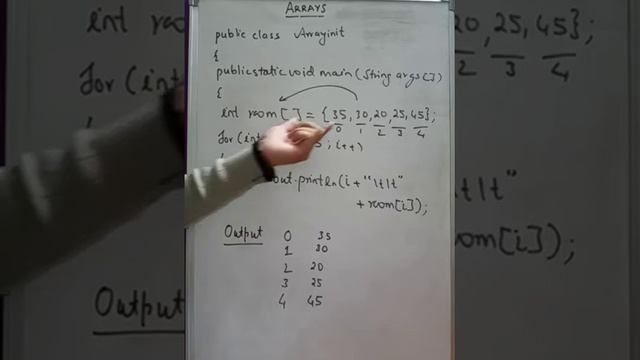 ARRAYS
public class Arrayinit
{
public static void main (String args[])
{
int room[] = {35, 30, 20, 25, 45};
0 1 2 3 4
for (int ; i++)
{
out.println(i + "\t\t"
+ room[i]);
Output 0 35
1 30
2 20
3 25
4 45